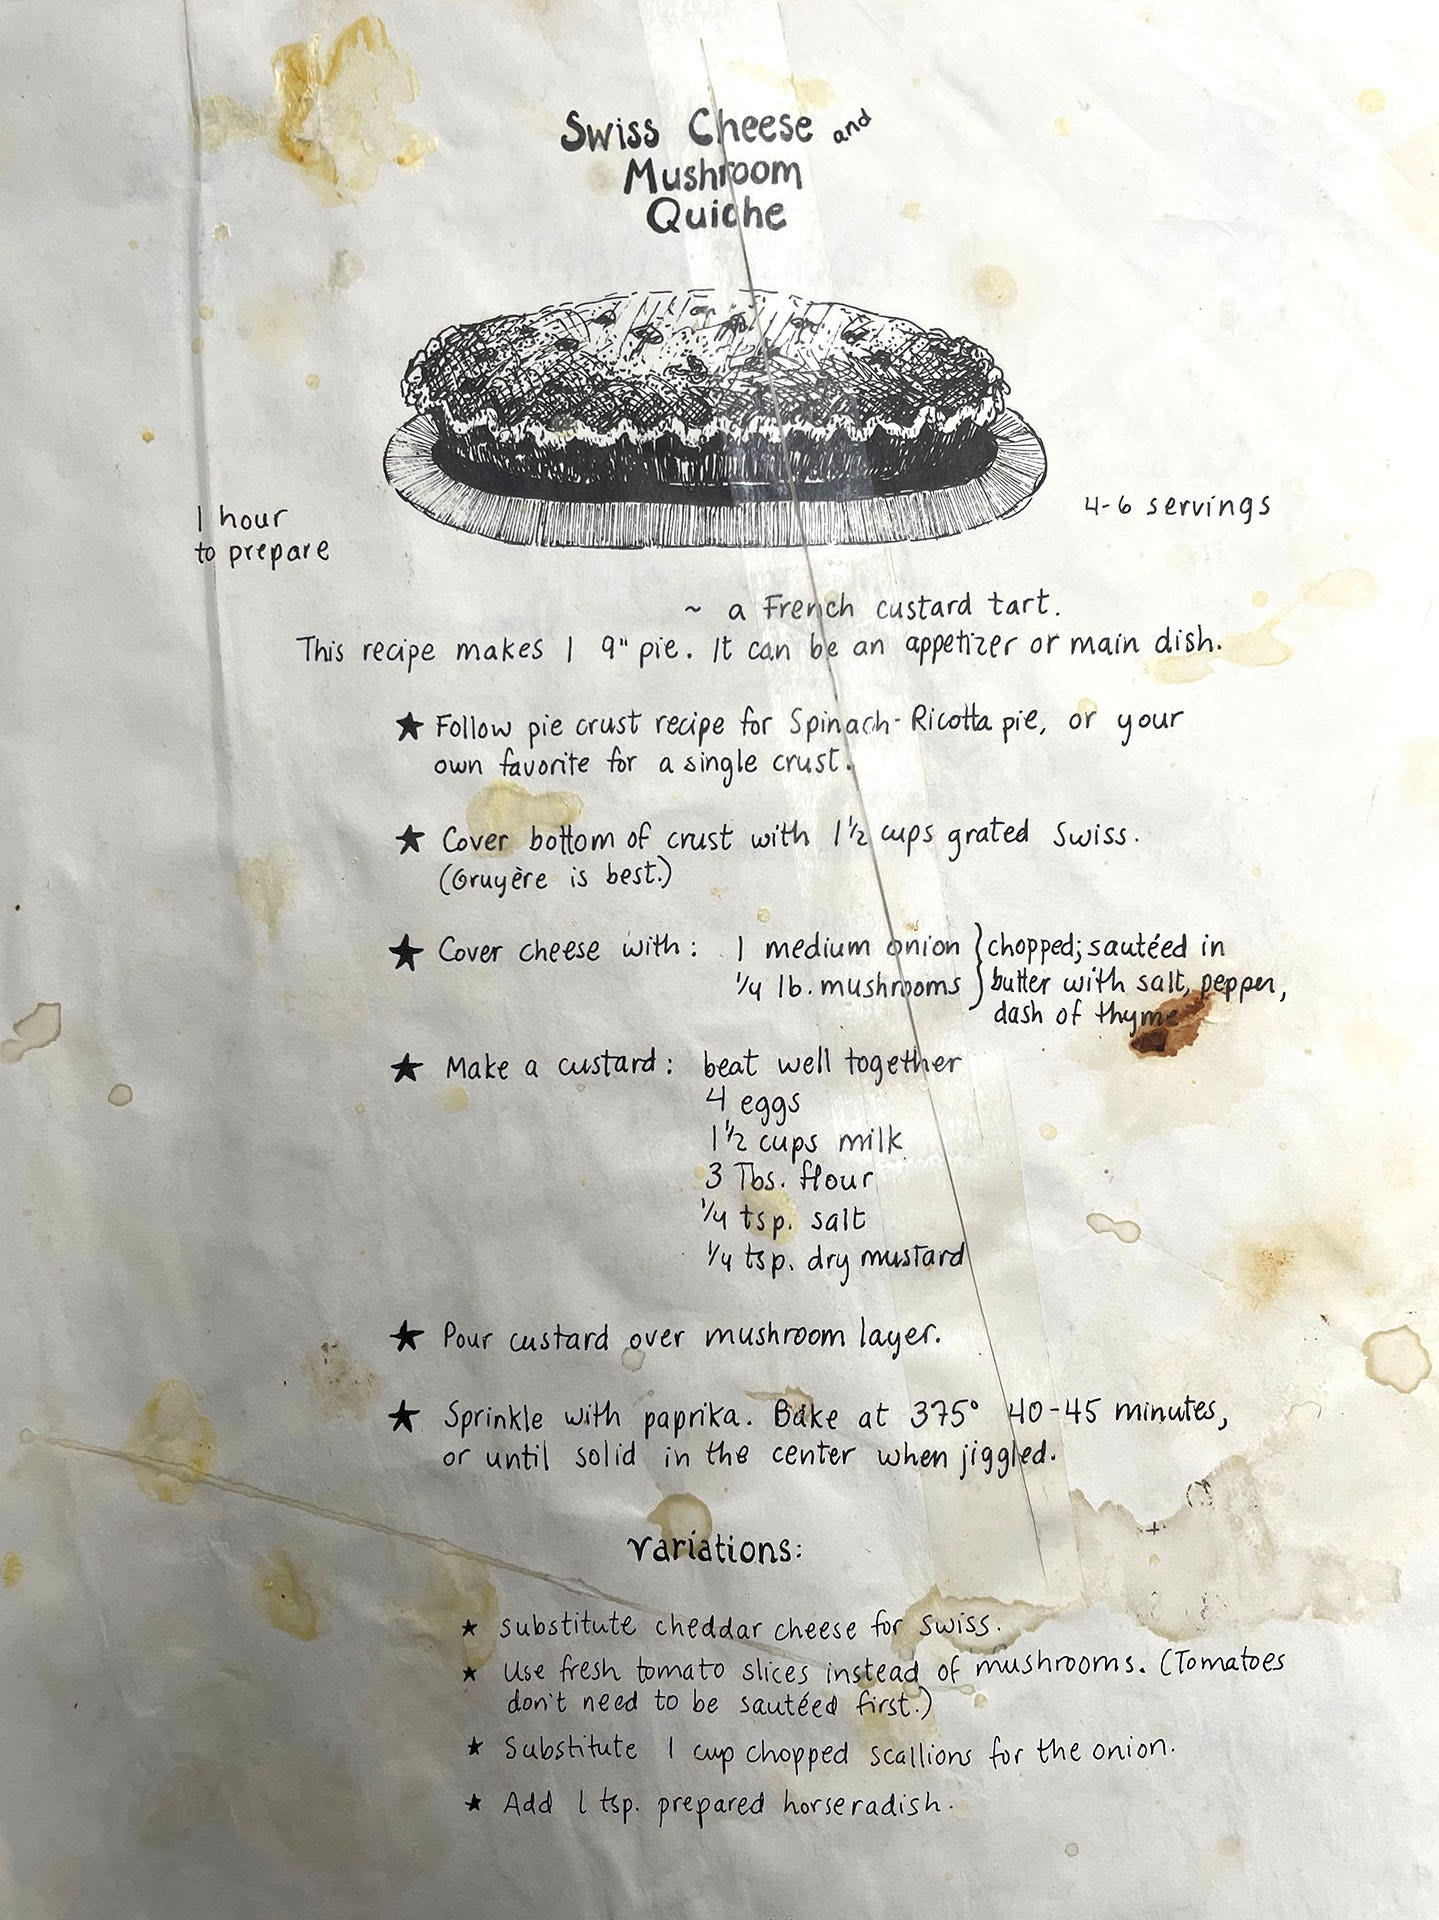 Swiss Cheese and
Mushroom
Quiche
1 hour
to prepare
4-6 servings
~ a French custard tart.
This recipe makes 1 9" pie. It can be an appetizer or main dish.
★ Follow pie crust recipe for Spinach-Ricotta pie, or your
own favorite for a single crust.
★ Cover bottom of crust with 1½ cups grated Swiss.
(Gruyère is best.)
★ Cover cheese with: 1 medium onion } chopped; sautéed in
¼ lb. mushrooms } butter with salt, pepper,
dash of thyme
★ Make a custard: beat well together
4 eggs
1½ cups milk
3 Tbs. flour
¼ tsp. salt
¼ tsp. dry mustard
★ Pour custard over mushroom layer.
★ Sprinkle with paprika. Bake at 375° 40-45 minutes,
or until solid in the center when jiggled.
variations:
★ substitute cheddar cheese for swiss.
★ Use fresh tomato slices instead of mushrooms. (Tomatoes
don't need to be sautéed first.)
★ Substitute 1 cup chopped scallions for the onion.
★ Add 1 tsp. prepared horseradish.